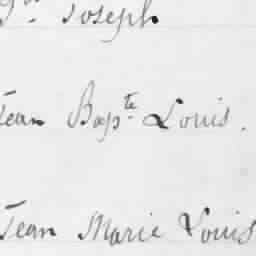 Joseph
Jean Bapte Louis.
Jean Marie Louis